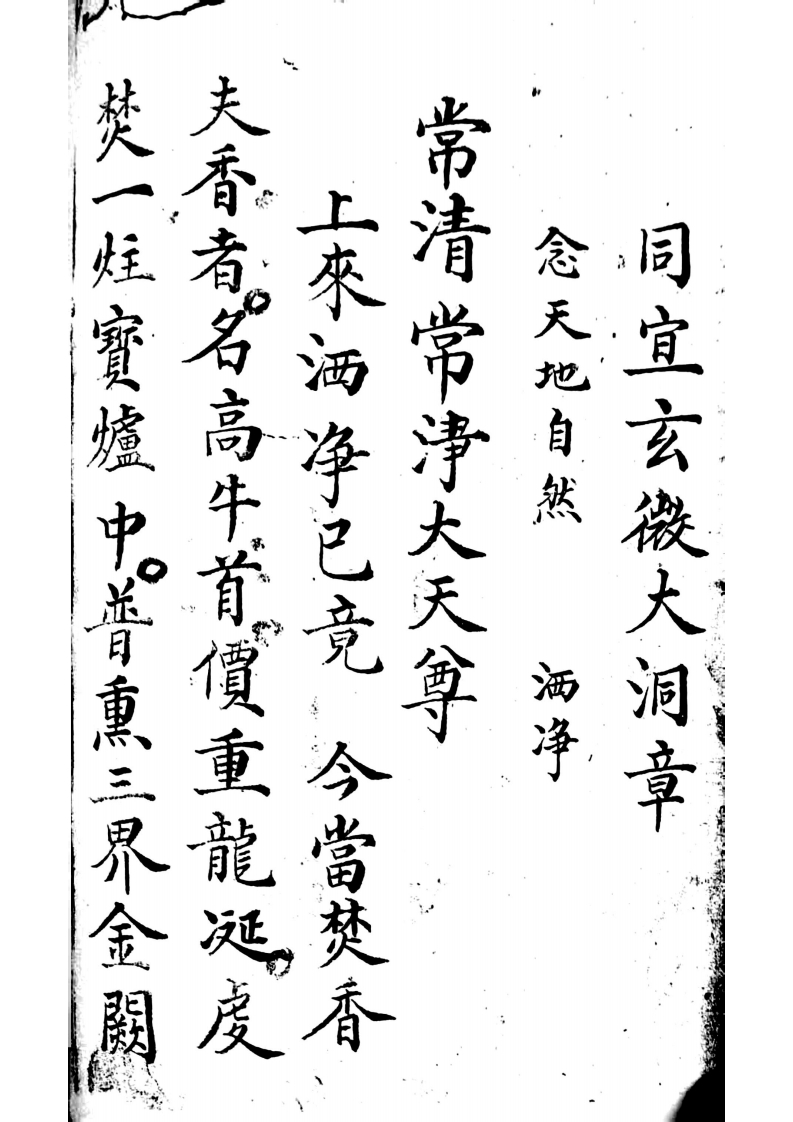 同宣玄微大洞章
念天地自然 洒净
常清常淨大天尊
上來洒净已竟 今當焚香
夫香者名高牛首價重龍涎虔
焚一炷寶爐中普熏三界金闕